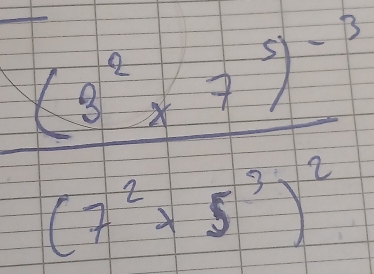 (3² × 7⁵)⁻³
(7² × 5³)²